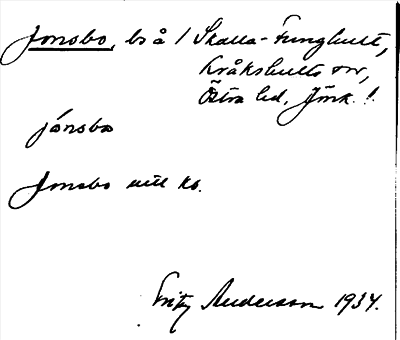 Jonsbo, bs å 1 Skalla-Funghult,
Kråkshults sn,
Östra hd, Jönk. l.
jónsbo
Jonsbo
Fritz Anderson 1934.